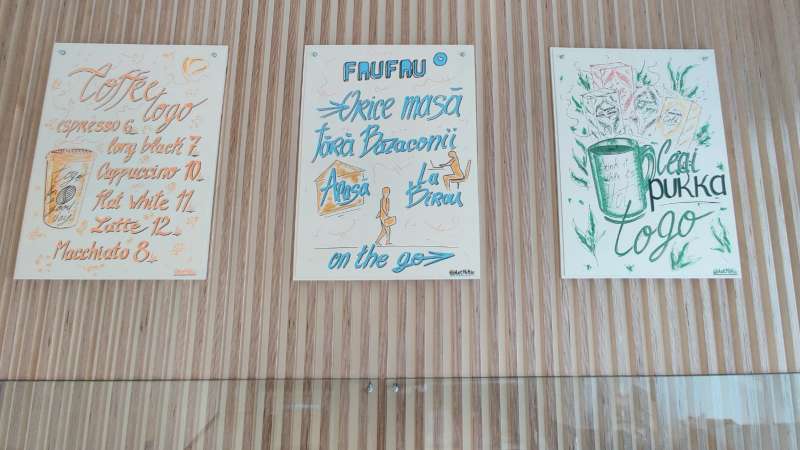 Coffee
togo
espresso 6
long black 7
Cappuccino 10
flat white 11
Latte 12
Macchiato 8
FAUFAU
Orice masă
fără Bazaconii
Acasă
La
Birou
on the go
Ceai
PUKKA
togo